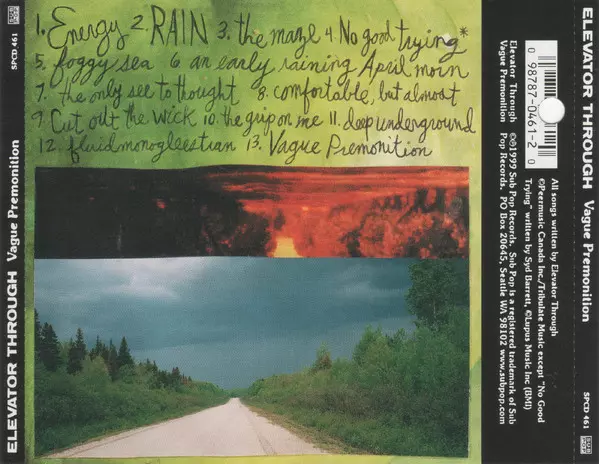 1. Energy 2. RAIN 3. the maze 4. No good trying*
5. foggy sea 6 an early raining April morn
7. the only see to thought 8. comfortable, but almost
9. Cut out the wick 10. the grip on me 11. deep underground
12. fluidmonogleestian 13. Vague Premonition
SUB POP
SPCD 461
ELEVATOR THROUGH Vague Premonition
0 98787-0461-2 0
Elevator Through
Vague Premonition
℗©1999 Sub Pop Records. Sub Pop is a registered trademark of Sub
Pop Records. PO Box 20645, Seattle WA 98102 www.subpop.com
All songs written by Elevator Through
©Peermusic Canada Inc./Tribulate Music except "No Good
Trying" written by Syd Barrett, ©Lupus Music Inc (BMI)
ELEVATOR THROUGH Vague Premonition
SPCD 461
SUB POP